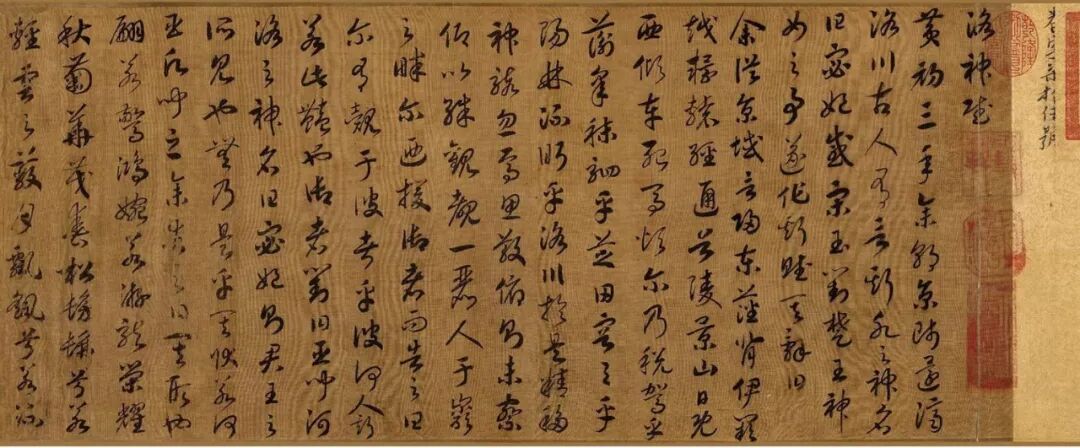 洛神賦
黄初三年余朝京師還濟
洛川古人有言斯水之神名
曰宓妃感宋玉對楚王神
女之事遂作斯賦其辭曰
余從京域言歸東藩背伊闕
越轘轅經通谷陵景山日既
西傾車殆馬煩爾乃税駕乎
蘅皋秣駟乎芝田容與乎
陽林流眄乎洛川於是精移
神駭忽焉思散俯則未察
仰以殊觀覩一麗人于巖
之畔爾迺援御者而告之曰
爾有覿于彼者乎彼何人斯
若此豔也御者對曰臣聞河
洛之神名曰宓妃則君王之
所見也無乃是乎其狀若何
臣願聞之余告之曰其形也
翩若驚鴻婉若游龍榮耀
秋菊華茂春松髣髴兮若
輕雲之蔽月飄飖兮若流